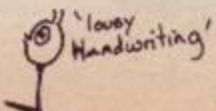 'lousy
Handwriting'